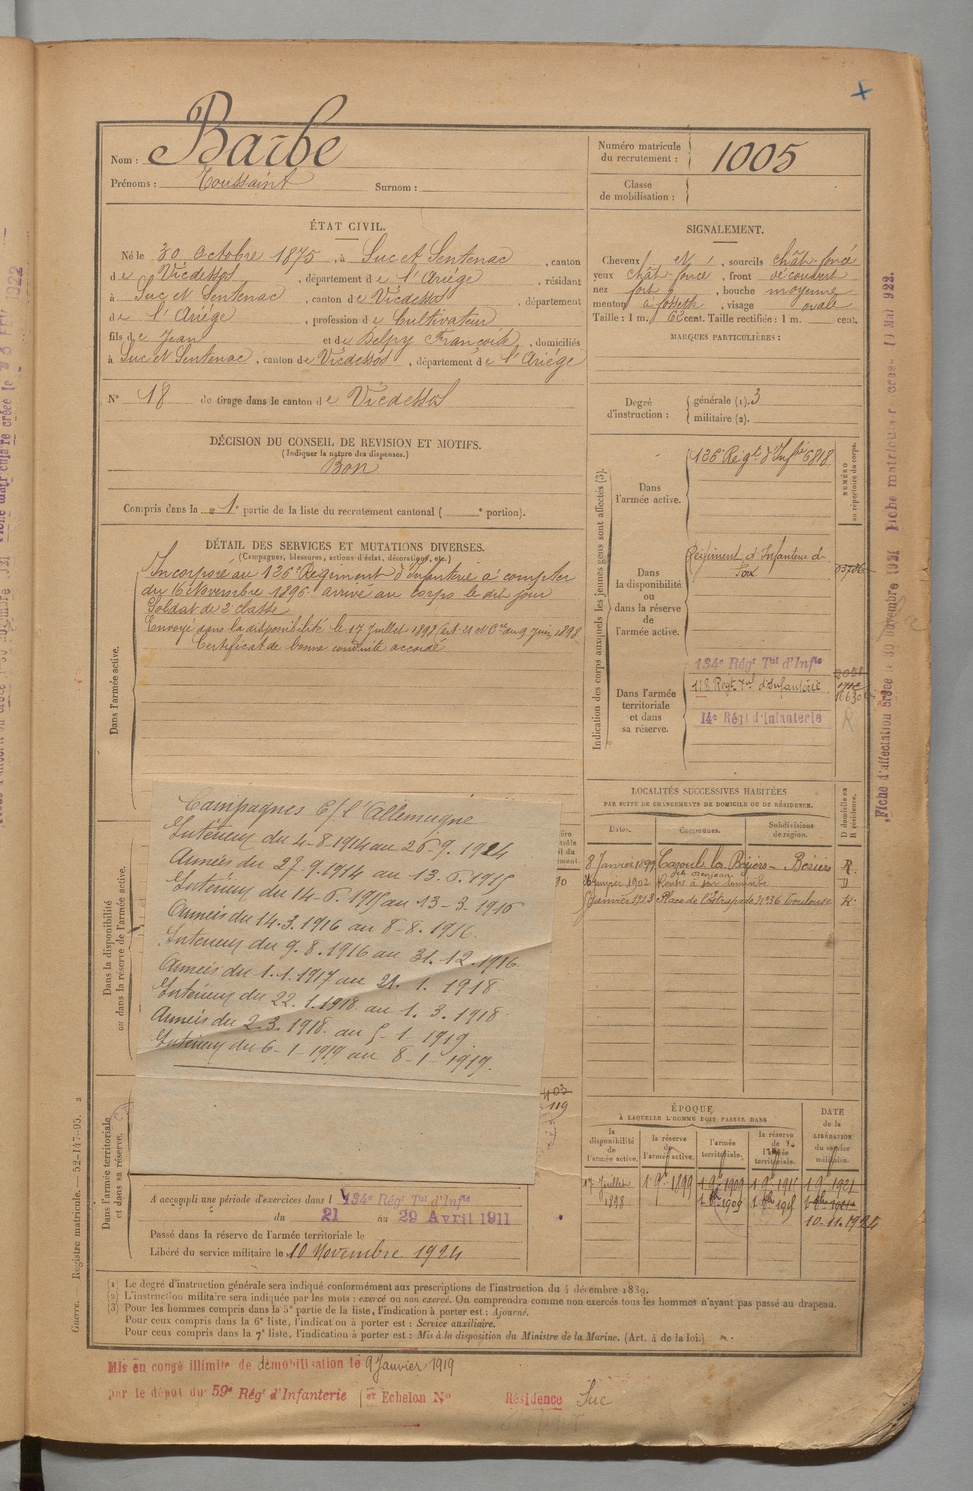 Nom : Barbe
Prénoms : Toussaint Surnom :
Numéro matricule du recrutement : 1005
Classe de mobilisation :
ÉTAT CIVIL.
Né le 30 Octobre 1875, à Suc et Sentenac, canton
de Vicdessos, département de l'Ariége, résidant
à Suc et Sentenac, canton de Vicdessos, département
de l'Ariége, profession de Cultivateur
fils de Jean et de Delpy Françoise, domiciliés
à Suc et Sentenac, canton de Vicdessos, département de l'Ariége
N° 18 de tirage dans le canton de Vicdessos
DÉCISION DU CONSEIL DE REVISION ET MOTIFS.
(Indiquer la nature des dispenses.)
Bon
Compris dans la 1e partie de la liste du recrutement cantonal ( e portion).
SIGNALEMENT.
Cheveux , sourcils chât-foncé
yeux chât-foncé, front découvert
nez fort, bouche moyenne
menton à fossette, visage ovale
Taille : 1 m. 62 cent. Taille rectifiée : 1 m. cent.
MARQUES PARTICULIÈRES :
Degré d'instruction : générale (1). 3
militaire (2).
DÉTAIL DES SERVICES ET MUTATIONS DIVERSES.
(Campagnes, blessures, actions d'éclat, décorations, etc.)
Dans l'armée active.
Incorporé au 126e Régiment d'Infanterie à compter
du 16 Novembre 1896. arrivé au corps le dit jour
Soldat de 2e classe
Envoyé dans la disponibilité le 17 Juillet 1898
Certificat de bonne conduite accordé
Campagnes C/ l'Allemagne
Intérieur du 4-8-1914 au 26-9-1914
Armées du 27-9-1914 au 13-6-1915
Intérieur du 14-6-1915 au 13-3-1916
Armées du 14.3.1916 au 8-8-1916.
Intérieur du 9.8.1916 au 31.12.1916
Armées du 1.1.1917 au 21.1.1918
Intérieur du 22.1.1918 au 1.3.1918.
Armées du 2.3.1918 au 5-1-1919.
Intérieur du 6-1-1919 au 8-1-1919.
Dans la disponibilité ou dans la réserve de l'armée active.
Dans l'armée territoriale et dans sa réserve.
A accompli une période d'exercices dans l 134e Régt Tal d'Infie
du 21 au 29 Avril 1911
Passé dans la réserve de l'armée territoriale le
Libéré du service militaire le 10 Novembre 1924
Indication des corps auxquels les jeunes gens sont affectés (3).
NUMÉRO au répertoire du corps.
Dans l'armée active.
126e Régt d'Infie 6818
Dans la disponibilité ou dans la réserve de l'armée active.
Régiment d'Infanterie de Foix
Dans l'armée territoriale et dans sa réserve.
134e Régt Tal d'Infie
118 Regt Tal d'Infanterie
14e Régt d'Infanterie
LOCALITÉS SUCCESSIVES HABITÉES
PAR SUITE DE CHANGEMENTS DE DOMICILE OU DE RÉSIDENCE.
Dates. Communes. Subdivisions de région. D domicile ou R résidence.
8 Janvier 1899 Cazouls les Béziers - Béziers R.
1902 Rentré à son domicile D
Janvier 1913 Place de l'Estrapade N° 36 Toulouse R.
ÉPOQUE
À LAQUELLE L'HOMME DOIT PASSER DANS
la disponibilité de l'armée active. la réserve de l'armée active. l'armée territoriale. la réserve de l'armée territoriale.
DATE de la LIBÉRATION du service militaire.
17 Juillet 1898 1 9bre 1899 1 9bre 1909 1 9bre 1915 1 9bre 1921
10-11-1924
(1) Le degré d'instruction générale sera indiqué conformément aux prescriptions de l'instruction du 4 décembre 1889.
(2) L'instruction militaire sera indiquée par les mots : exercé ou non exercé. On comprendra comme non exercés tous les hommes n'ayant pas passé au drapeau.
(3) Pour les hommes compris dans la 5e partie de la liste, l'indication à porter est : Ajourné.
Pour ceux compris dans la 6e liste, l'indication à porter est : Service auxiliaire.
Pour ceux compris dans la 7e liste, l'indication à porter est : Mis à la disposition du Ministre de la Marine. (Art. 4 de la loi.)
Mis en congé illimité de démobilisation le 9 Janvier 1919
par le dépôt du 59e Régt d'Infanterie 1er Echelon N° Résidence Suc
Guerre. — Registre matricule. — 52-147-95. 2